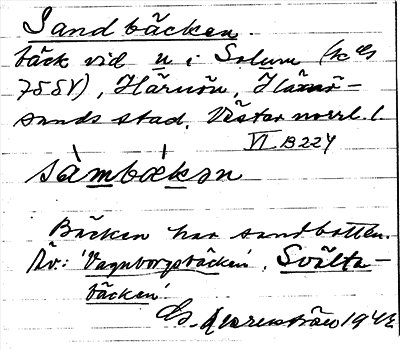 Sandbäcken.
bäck vid n i Solum (k
755V), Härnön, Härnö-
sands stad, Västernorrl. l.
VI B 224
sàmbækən
Bäcken har sandbotten.
Äv.: 'Vagnborgsbäcken', Svälta-
bäcken'.
1942